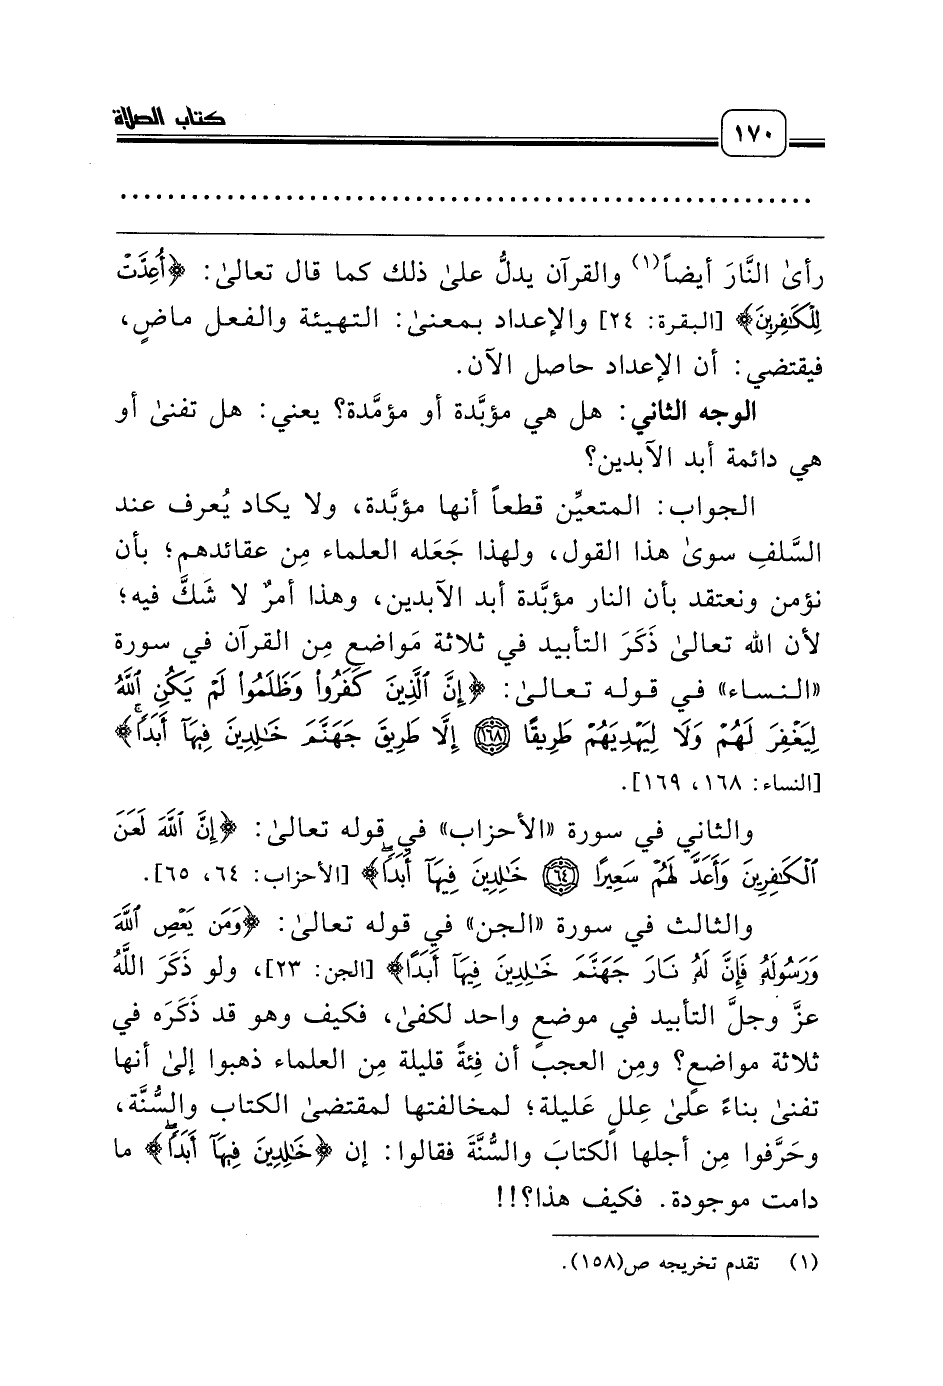 كتاب الصلاة
١٧٠
رأىٰ النَّارَ أيضاً(١) والقرآن يدلُّ علىٰ ذلك كما قال تعالىٰ: ﴿أُعِدَّتْ
لِلْكَٰفِرِينَ﴾ [البقرة: ٢٤] والإعداد بمعنىٰ: التهيئة والفعل ماضٍ،
فيقتضي: أن الإعداد حاصل الآن.
الوجه الثاني: هل هي مؤبَّدة أو مؤمَّدة؟ يعني: هل تفنىٰ أو
هي دائمة أبد الآبدين؟
الجواب: المتعيِّن قطعاً أنها مؤبَّدة، ولا يكاد يُعرف عند
السَّلفِ سوىٰ هذا القول، ولهذا جَعَله العلماء مِن عقائدهم؛ بأن
نؤمن ونعتقد بأن النار مؤبَّدة أبد الآبدين، وهذا أمرٌ لا شَكَّ فيه؛
لأن الله تعالىٰ ذَكَرَ التأبيد في ثلاثة مَواضع مِن القرآن في سورة
«النساء» في قوله تعالىٰ: ﴿إِنَّ ٱلَّذِينَ كَفَرُوا۟ وَظَلَمُوا۟ لَمْ يَكُنِ ٱللَّهُ
لِيَغْفِرَ لَهُمْ وَلَا لِيَهْدِيَهُمْ طَرِيقًا ١٦٨ إِلَّا طَرِيقَ جَهَنَّمَ خَٰلِدِينَ فِيهَآ أَبَدًاۚ﴾
[النساء: ١٦٨، ١٦٩].
والثاني في سورة «الأحزاب» في قوله تعالىٰ: ﴿إِنَّ ٱللَّهَ لَعَنَ
ٱلْكَٰفِرِينَ وَأَعَدَّ لَهُمْ سَعِيرًا ٦٤ خَٰلِدِينَ فِيهَآ أَبَدًاۖ﴾ [الأحزاب: ٦٤، ٦٥].
والثالث في سورة «الجن» في قوله تعالىٰ: ﴿وَمَن يَعْصِ ٱللَّهَ
وَرَسُولَهُۥ فَإِنَّ لَهُۥ نَارَ جَهَنَّمَ خَٰلِدِينَ فِيهَآ أَبَدًا﴾ [الجن: ٢٣]، ولو ذَكَرَ اللَّهُ
عزَّ وجلَّ التأبيد في موضعٍ واحد لكفىٰ، فكيف وهو قد ذَكَرَه في
ثلاثة مواضعٍ؟ ومِن العجب أن فِئةً قليلة مِن العلماء ذهبوا إلىٰ أنها
تفنىٰ بناءً علىٰ عِللٍ عَليلة؛ لمخالفتها لمقتضىٰ الكتاب والسُّنَّة،
وحَرَّفوا مِن أجلها الكتابَ والسُّنَّةَ فقالوا: إن ﴿خَٰلِدِينَ فِيهَآ أَبَدًاۖ﴾ ما
دامت موجودة. فكيف هذا؟!!
(١) تقدم تخريجه ص(١٥٨).